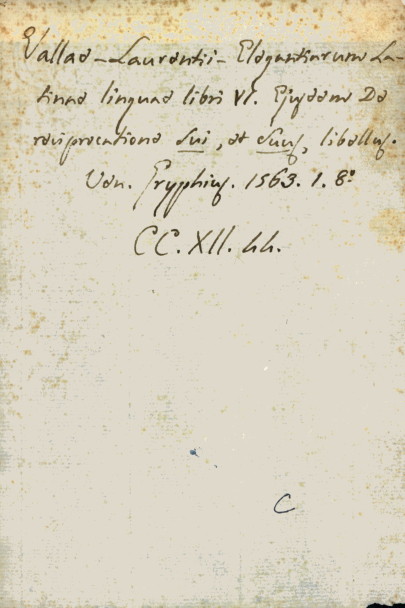 Vallae - Laurentii - Elegantiarum La-
tinae linguae libri VI. Ejusdem De
reciprocatione Sui, et Suus, libellus.
Ven. Gryphius. 1563. 1. 8°
CC. XII. 44.
C